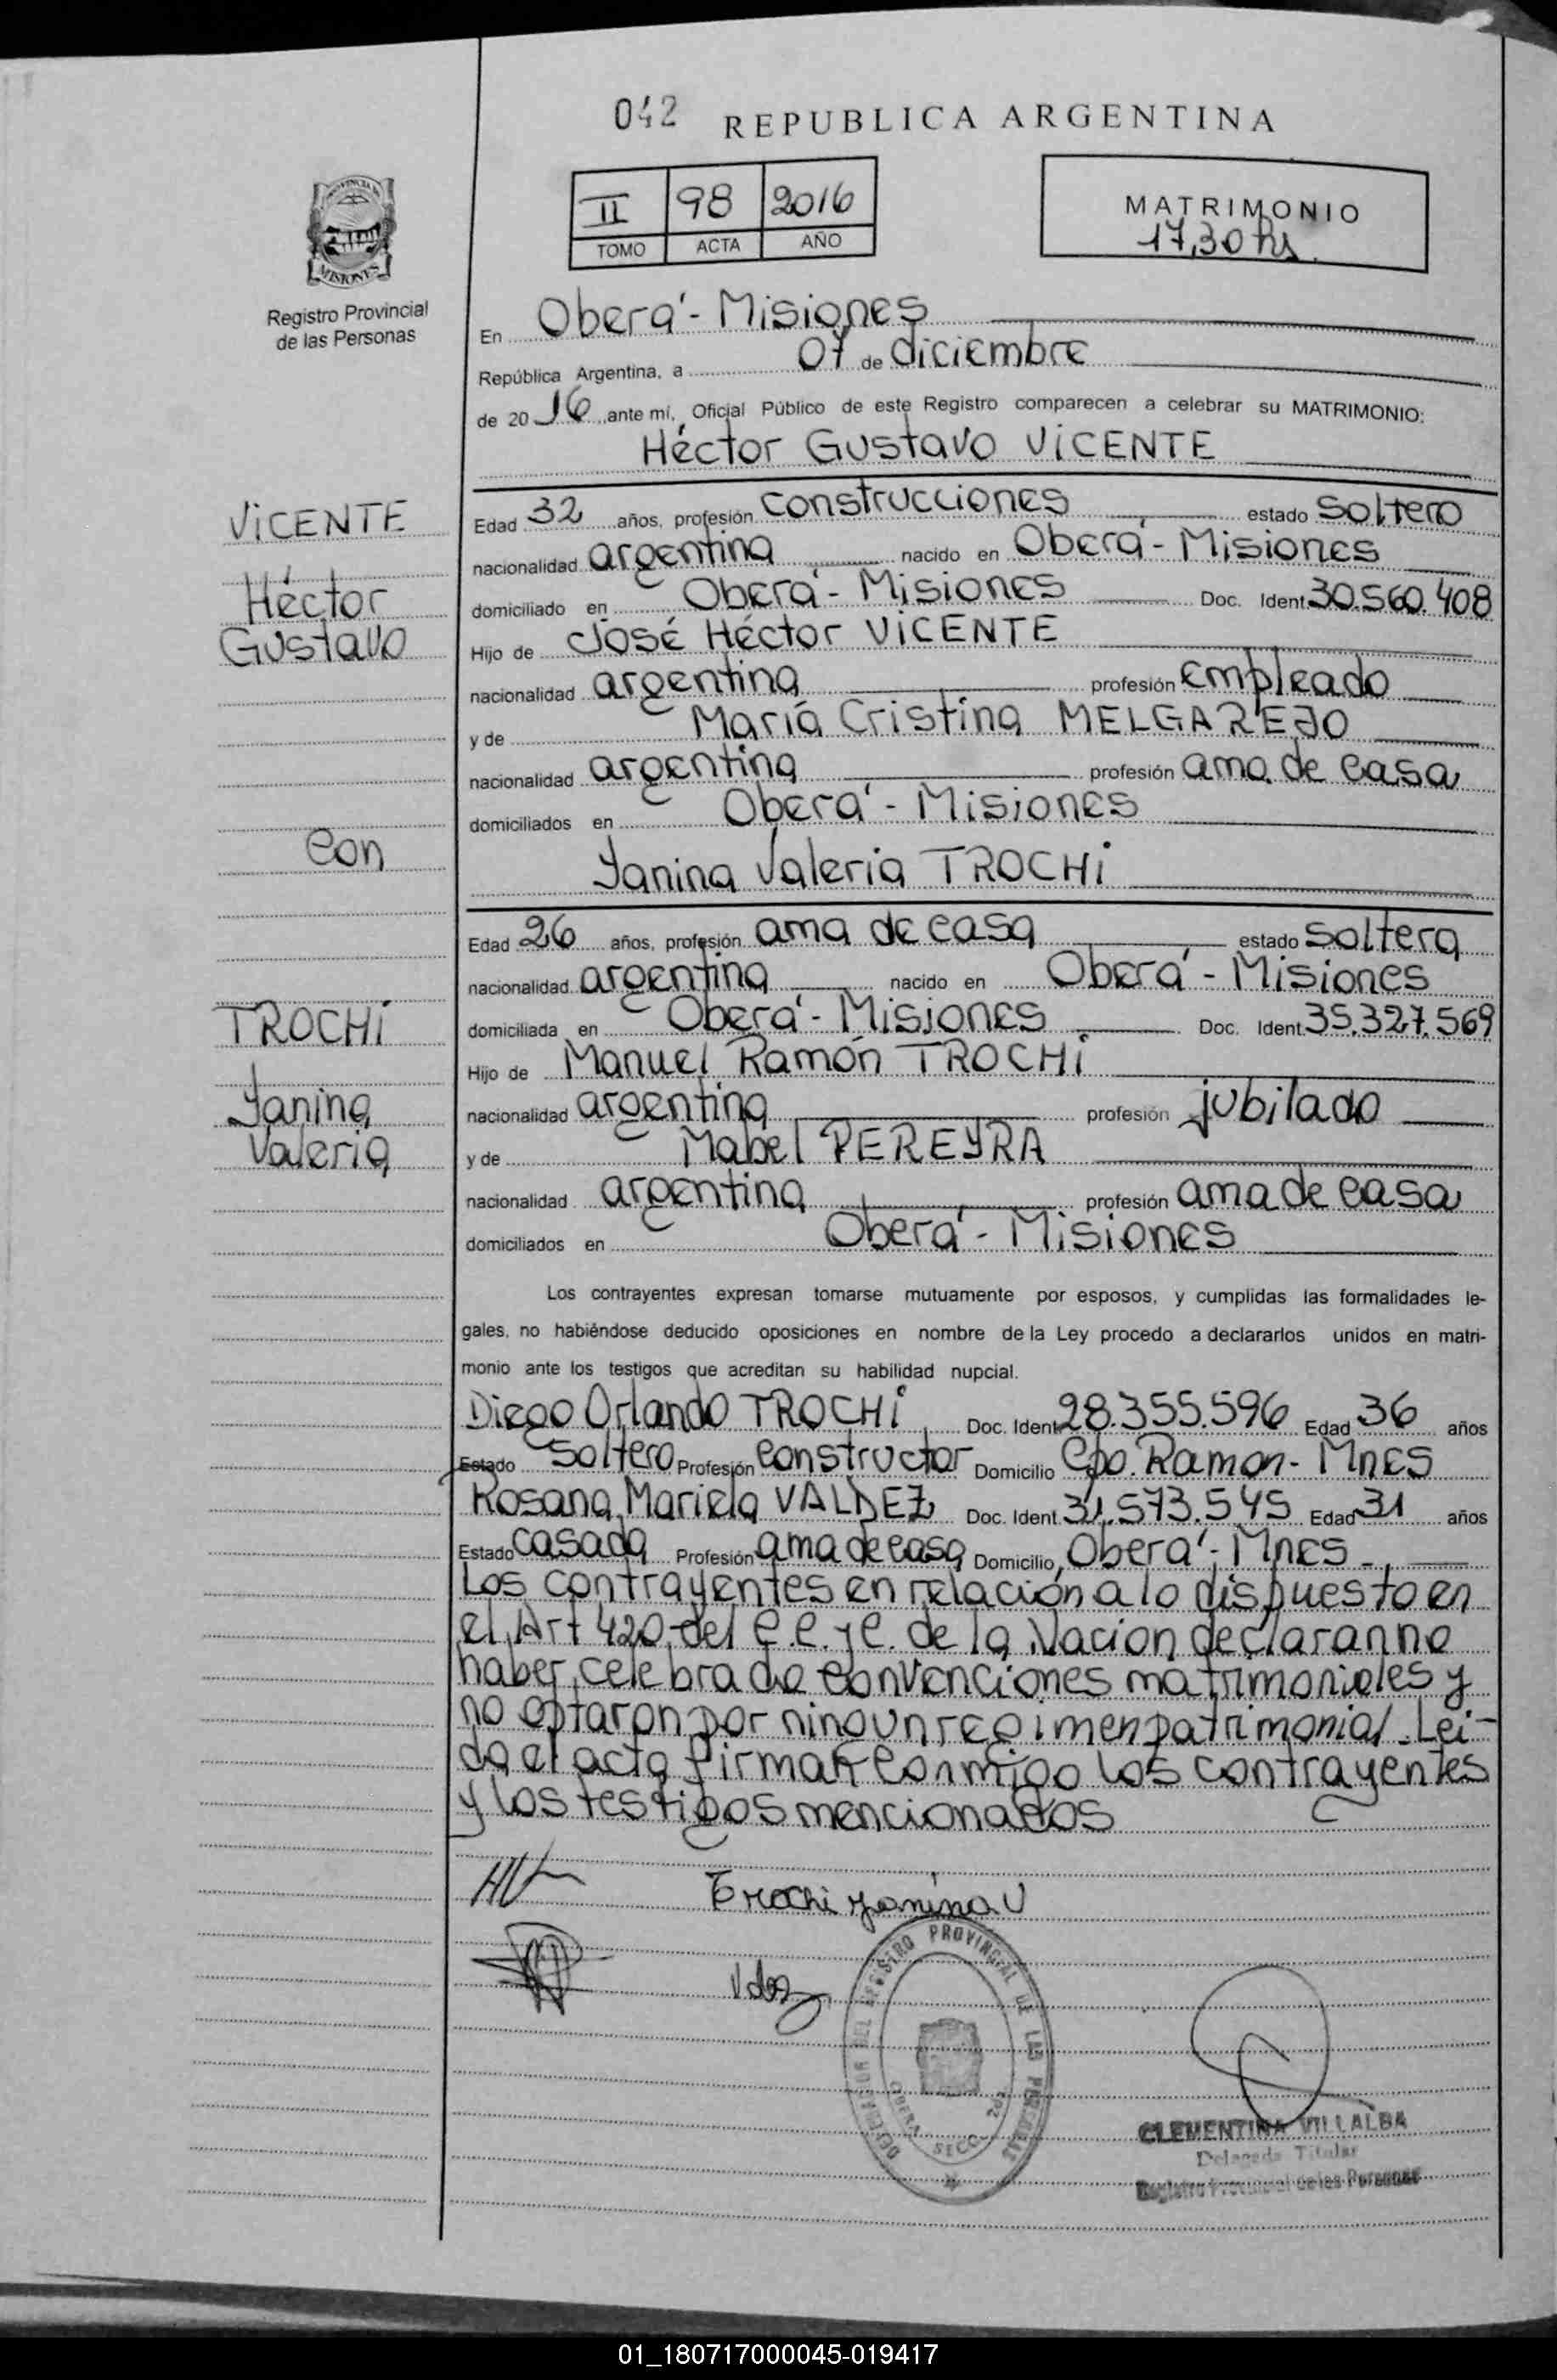 042 REPUBLICA ARGENTINA
II 98 2016
TOMO ACTA AÑO
MATRIMONIO
17,30 hs
PROVINCIA DE
MISIONES
Registro Provincial
de las Personas
En Oberá - Misiones
República Argentina, a 07 de diciembre
de 2016 ante mí, Oficial Público de este Registro comparecen a celebrar su MATRIMONIO:
Héctor Gustavo VICENTE
VICENTE
Héctor
Gustavo
Edad 32 años, profesión construcciones estado soltero
nacionalidad argentina nacido en Oberá - Misiones
domiciliado en Oberá - Misiones Doc. Ident. 30.560.408
Hijo de José Héctor VICENTE
nacionalidad argentina profesión empleado
y de María Cristina MELGAREJO
nacionalidad argentina profesión ama de casa
domiciliados en Oberá - Misiones
con
Yanina Valeria TROCHI
Edad 26 años, profesión ama de casa estado soltera
nacionalidad argentina nacido en Oberá - Misiones
domiciliada en Oberá - Misiones Doc. Ident. 35.327.569
TROCHI
Yanina
Valeria
Hijo de Manuel Ramón TROCHI
nacionalidad argentina profesión jubilado
y de Mabel PEREYRA
nacionalidad argentina profesión ama de casa
domiciliados en Oberá - Misiones
Los contrayentes expresan tomarse mutuamente por esposos, y cumplidas las formalidades le-
gales, no habiéndose deducido oposiciones en nombre de la Ley procedo a declararlos unidos en matri-
monio ante los testigos que acreditan su habilidad nupcial.
Diego Orlando TROCHI Doc. Ident 28.355.596 Edad 36 años
Estado soltero Profesión constructor Domicilio Cpo. Ramon - Mnes
Rosana Mariela VALDEZ Doc. Ident. 31.573.545 Edad 31 años
Estado casada Profesión ama de casa Domicilio Oberá - Mnes -
Los contrayentes en relación a lo dispuesto en
el Art 420 del C.C. y C. de la Nacion declaran no
haber celebrado convenciones matrimoniales y
no optaron por ningun regimen patrimonial. Lei-
da el acta firman conmigo los contrayentes
y los testigos mencionados
Trochi Yanina V
DELEGACION DEL REGISTRO PROVINCIAL DE LAS PERSONAS
OBERA SECC. 2da
CLEMENTINA VILLALBA
Delegada Titular
Registro Provincial de las Personas
01_180717000045-019417